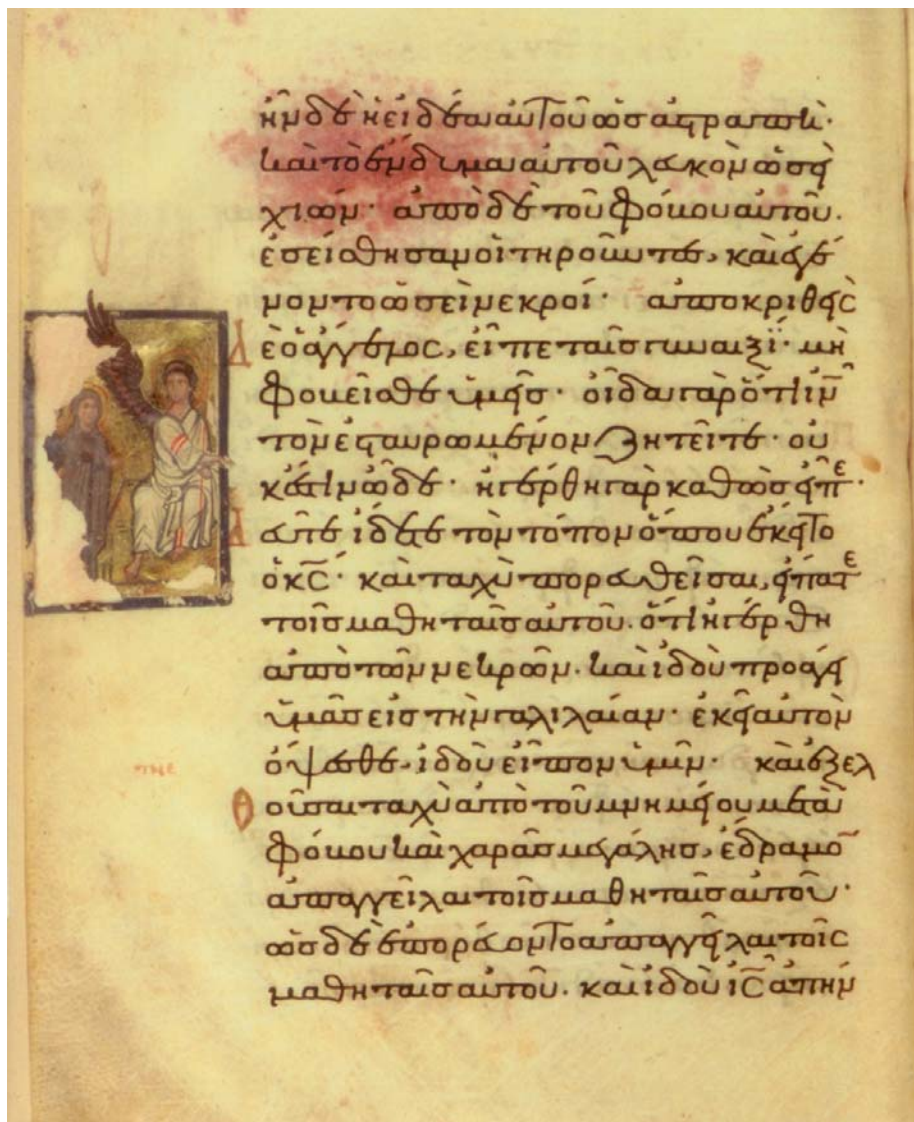 ἦν δὲ ἡ εἰδέα αὐτοῦ ὡς ἀστραπὴ·
καὶ τὸ ἔνδυμα αὐτοῦ λευκὸν ὡσεὶ
χιών· ἀπὸ δὲ τοῦ φόβου αὐτοῦ.
ἐσείσθησαν οἱ τηροῦντες, καὶ ἐγέ
νοντο ὡσεὶ νεκροί· ἀποκριθεὶς
Δ ὲ ὁ ἄγγελος, εἶπε ταῖς γυναιξί· μὴ
φοβεῖσθε ὑμεῖς· οἶδα γὰρ ὅτι ιν̅
τὸν ἐσταυρωμένον ζητεῖτε· οὐ
κἔστιν ὧδε· ἠγέρθη γὰρ καθὼς εἶπε·
Δ εῦτε ἴδετε τὸν τόπον ὅπου ἔκειτο
ὁ κς̅· καὶ ταχὺ πορευθεῖσαι, εἴπατε
τοῖς μαθηταῖς αὐτοῦ. ὅτι ἠγέρθη
ἀπὸ τῶν νεκρῶν. καὶ ἰδοὺ προάγει
ὑμᾶς εἰς τὴν γαλιλαίαν· ἐκεῖ αὐτὸν
ὄψεσθε. ἰδοὺ εἶπον ὑμῖν· καὶ ἐξελ
Θ οῦσαι ταχὺ ἀπὸ τοῦ μνημείου μετὰ
φόβου καὶ χαρᾶς μεγάλης, ἔδραμο̅
ἀπαγγεῖλαι τοῖς μαθηταῖς αὐτοῦ·
ὡς δὲ ἐπορεύοντο ἀπαγγεῖλαι τοῖς
μαθηταῖς αὐτοῦ. καὶ ἰδοὺ ις̅ ἀπήν